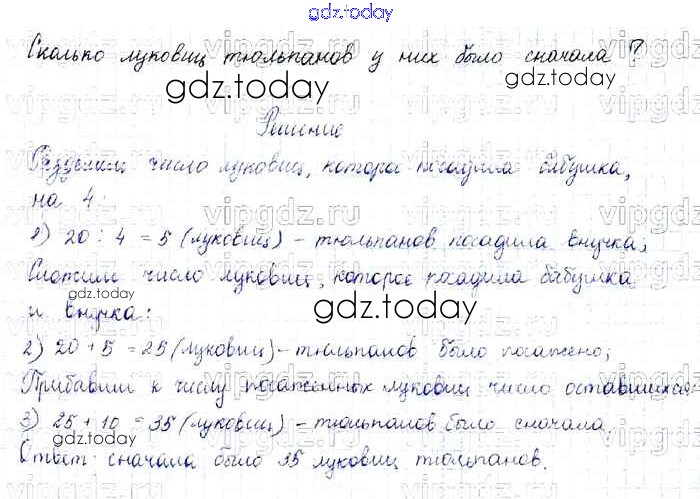 gdz.today
Сколько луковиц тюльпанов у них было сначала?
gdz.today gdz.today
Решение
Разделим число луковиц, которое посадила бабушка,
на 4:
1) 20 : 4 = 5 (луковиц) – тюльпанов посадила внучка;
Сложим число луковиц, которое посадила бабушка
gdz.today gdz.today
и внучка:
2) 20 + 5 = 25 (луковиц) – тюльпанов было посажено;
Прибавим к числу посаженных луковиц число оставшихся.
3) 25 + 10 = 35 (луковиц) – тюльпанов было сначала.
gdz.today gdz.today
Ответ: сначала было 35 луковиц тюльпанов.